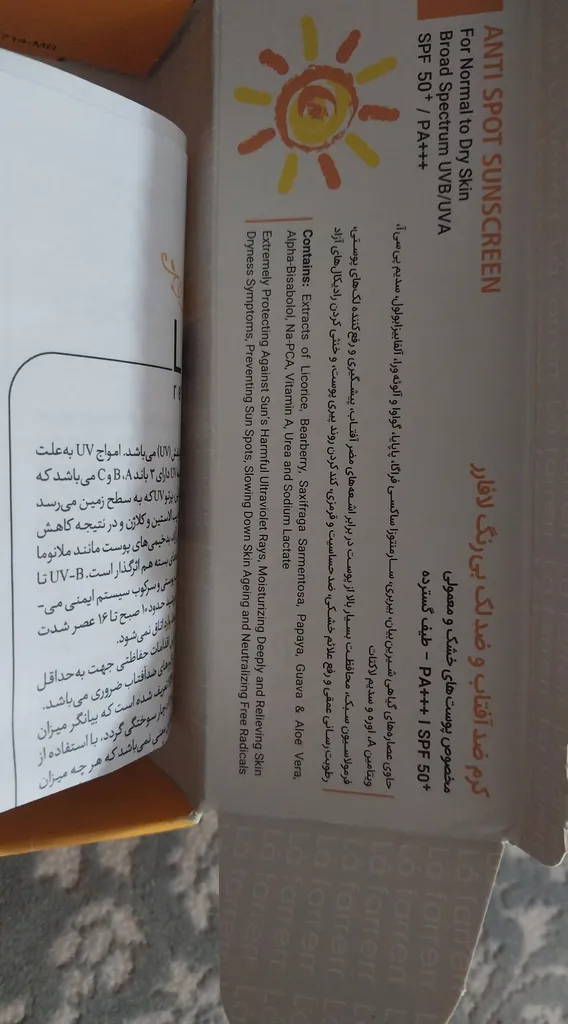 ANTI SPOT SUNSCREEN
For Normal to Dry Skin
Broad Spectrum UVB/UVA
SPF 50⁺ / PA+++
کرم ضد آفتاب و ضد لک بی‌رنگ لافارر
مخصوص پوست‌های خشک و معمولی
SPF 50⁺ | PA+++ – طیف گسترده
حاوی عصاره‌های گیاهی شیرین بیان، بیربری، سارمنتوزا ساکسی فراگا، پاپایا، گواوا و آلوئه‌ورا، آلفابیزابولول، سدیم پی سی آ،
ویتامین A، اوره و سدیم لاکتات
فرمولاسیون سبک، محافظت بسیار بالا از پوست در برابر اشعه‌های مضر آفتاب، پیشگیری و رفع‌کننده لک‌های پوستی،
رطوبت‌رسانی عمقی و رفع علائم خشکی، ضد حساسیت و قرمزی، کند کردن روند پیری پوست، و خنثی کردن رادیکال‌های آزاد
Contains: Extracts of Licorice, Bearberry, Saxifraga Sarmentosa, Papaya, Guava & Aloe Vera,
Alpha-Bisabolol, Na-PCA, Vitamin A, Urea and Sodium Lactate
Extremely Protecting Against Sun's Harmful Ultraviolet Rays, Moisturizing Deeply and Relieving Skin
Dryness Symptoms, Preventing Sun Spots, Slowing Down Skin Ageing and Neutralizing Free Radicals
(UV) می‌باشد. امواج UV به‌علت
دارای ۳ باند A، B و C می‌باشد که
UV که به سطح زمین می‌رسد
الاستین و کلاژن و در نتیجه کاهش
بدخیمی‌های پوست مانند ملانوما
بسته هم اثرگذار است. UV-B تا
و سرکوب سیستم ایمنی می-
حدود ۱۰ صبح تا ۱۶ عصر شدت
اتفاق نمی‌شود.
اقدامات حفاظتی جهت به‌حداقل
ضدآفتاب ضروری می‌باشد.
تعریف شده است که بیانگر میزان
سوختگی گردد. با استفاده از
نمی‌باشد که هر چه میزان
La farrerr
La farrerr
La farrerr
La farrerr